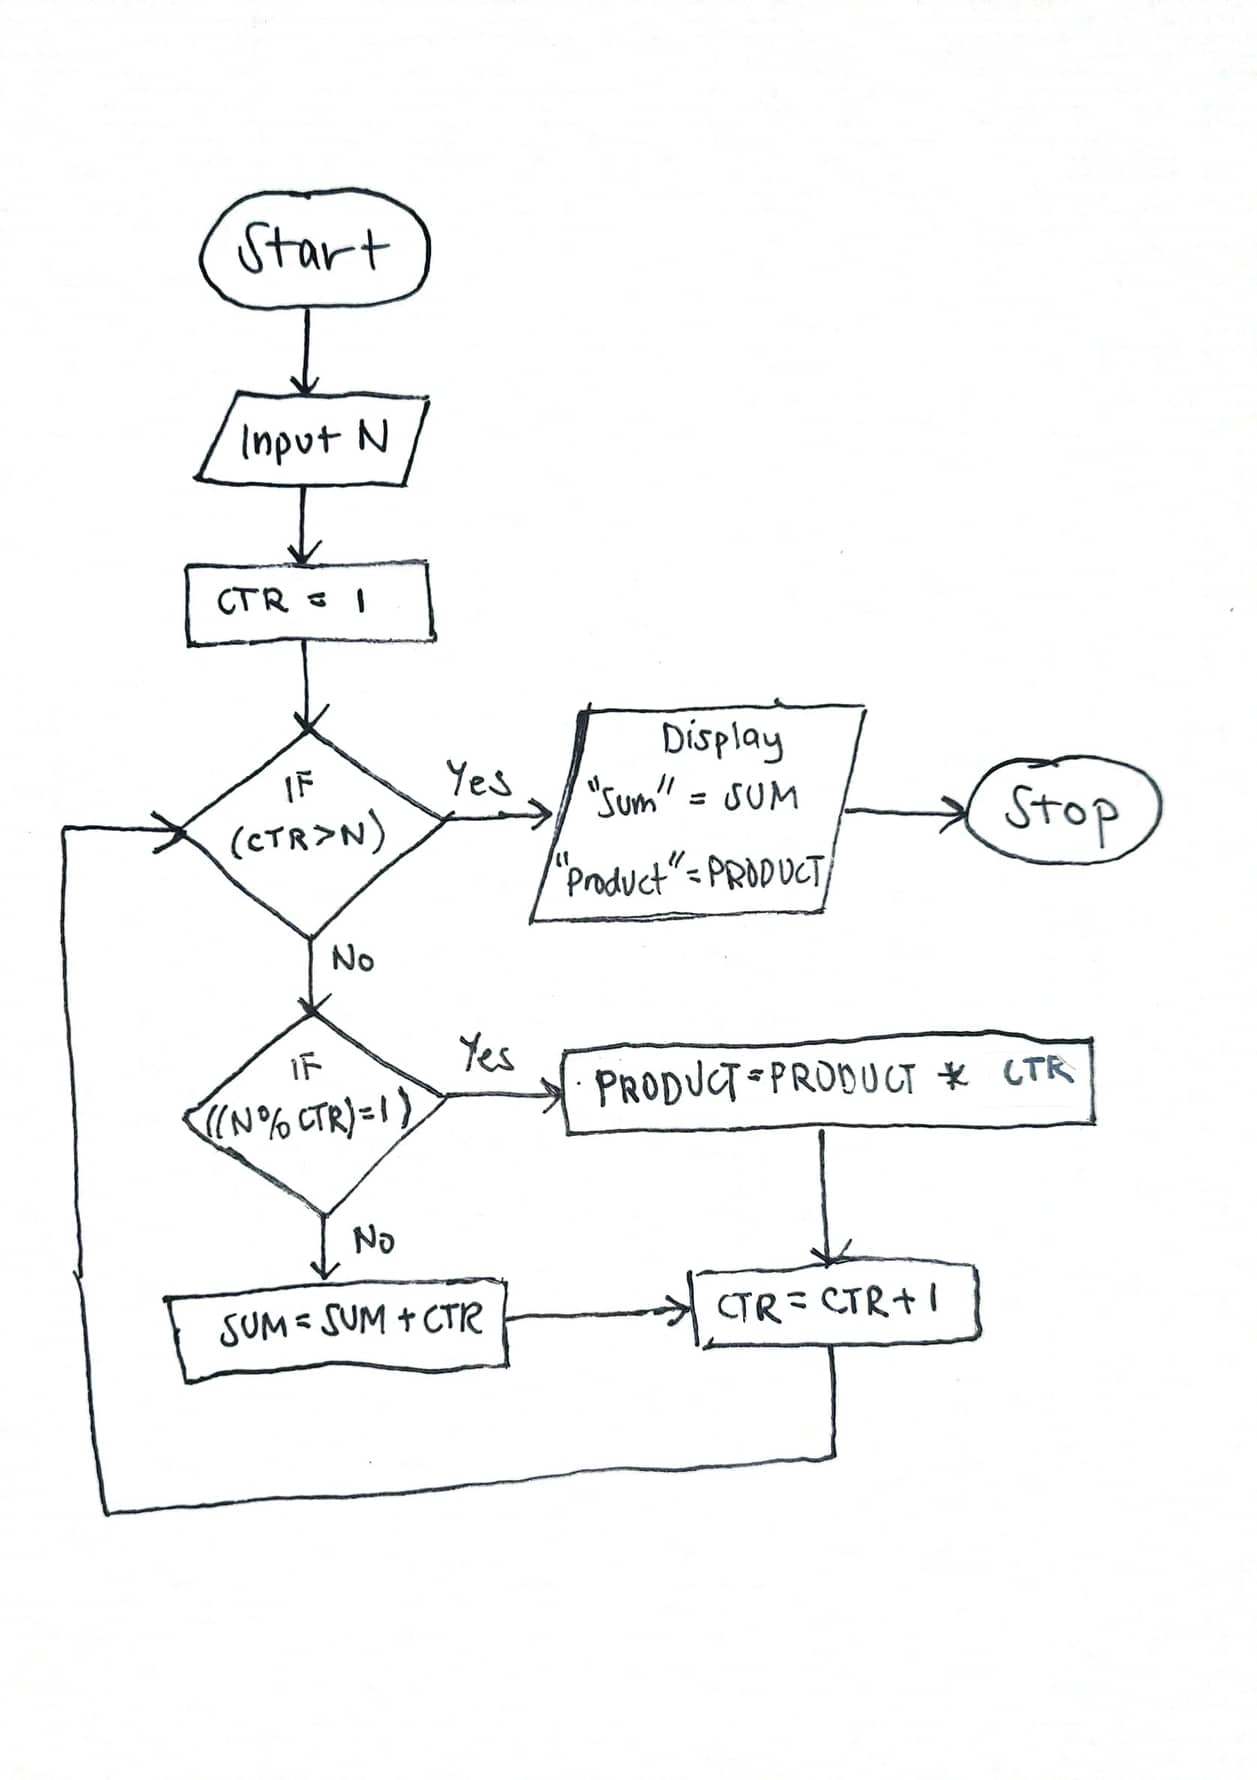 Start
Input N
CTR = 1
IF
(CTR>N)
Yes
Display
"Sum" = SUM
"Product"=PRODUCT
Stop
No
IF
((N% CTR)=1)
Yes
PRODUCT=PRODUCT * CTR
No
SUM=SUM+CTR
CTR=CTR+1